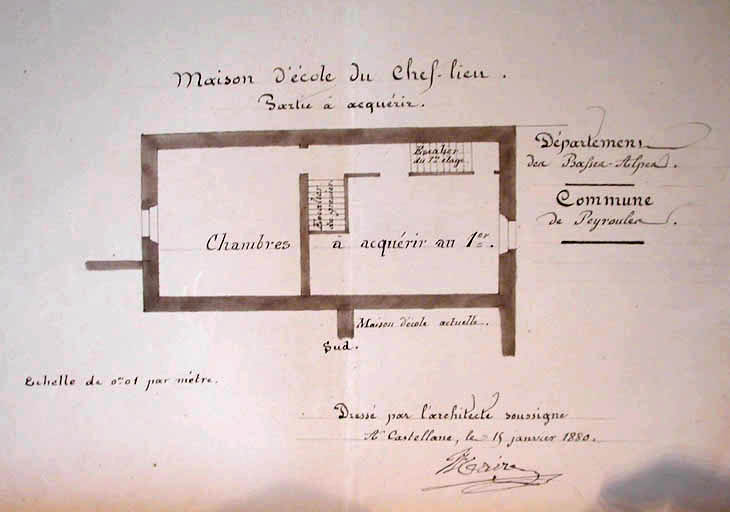 Maison d'école du Chef-lieu.
Partie à acquérir.
Département
des Basses-Alpes.
Commune
de Peyroules.
Escalier
du 1er étage
Escalier
du grenier
Chambres à acquérir au 1er.
Maison d'école actuelle.
Sud.
Echelle de 0m01 par mètre.
Dressé par l'architecte soussigné
A Castellane, le 15 janvier 1880.